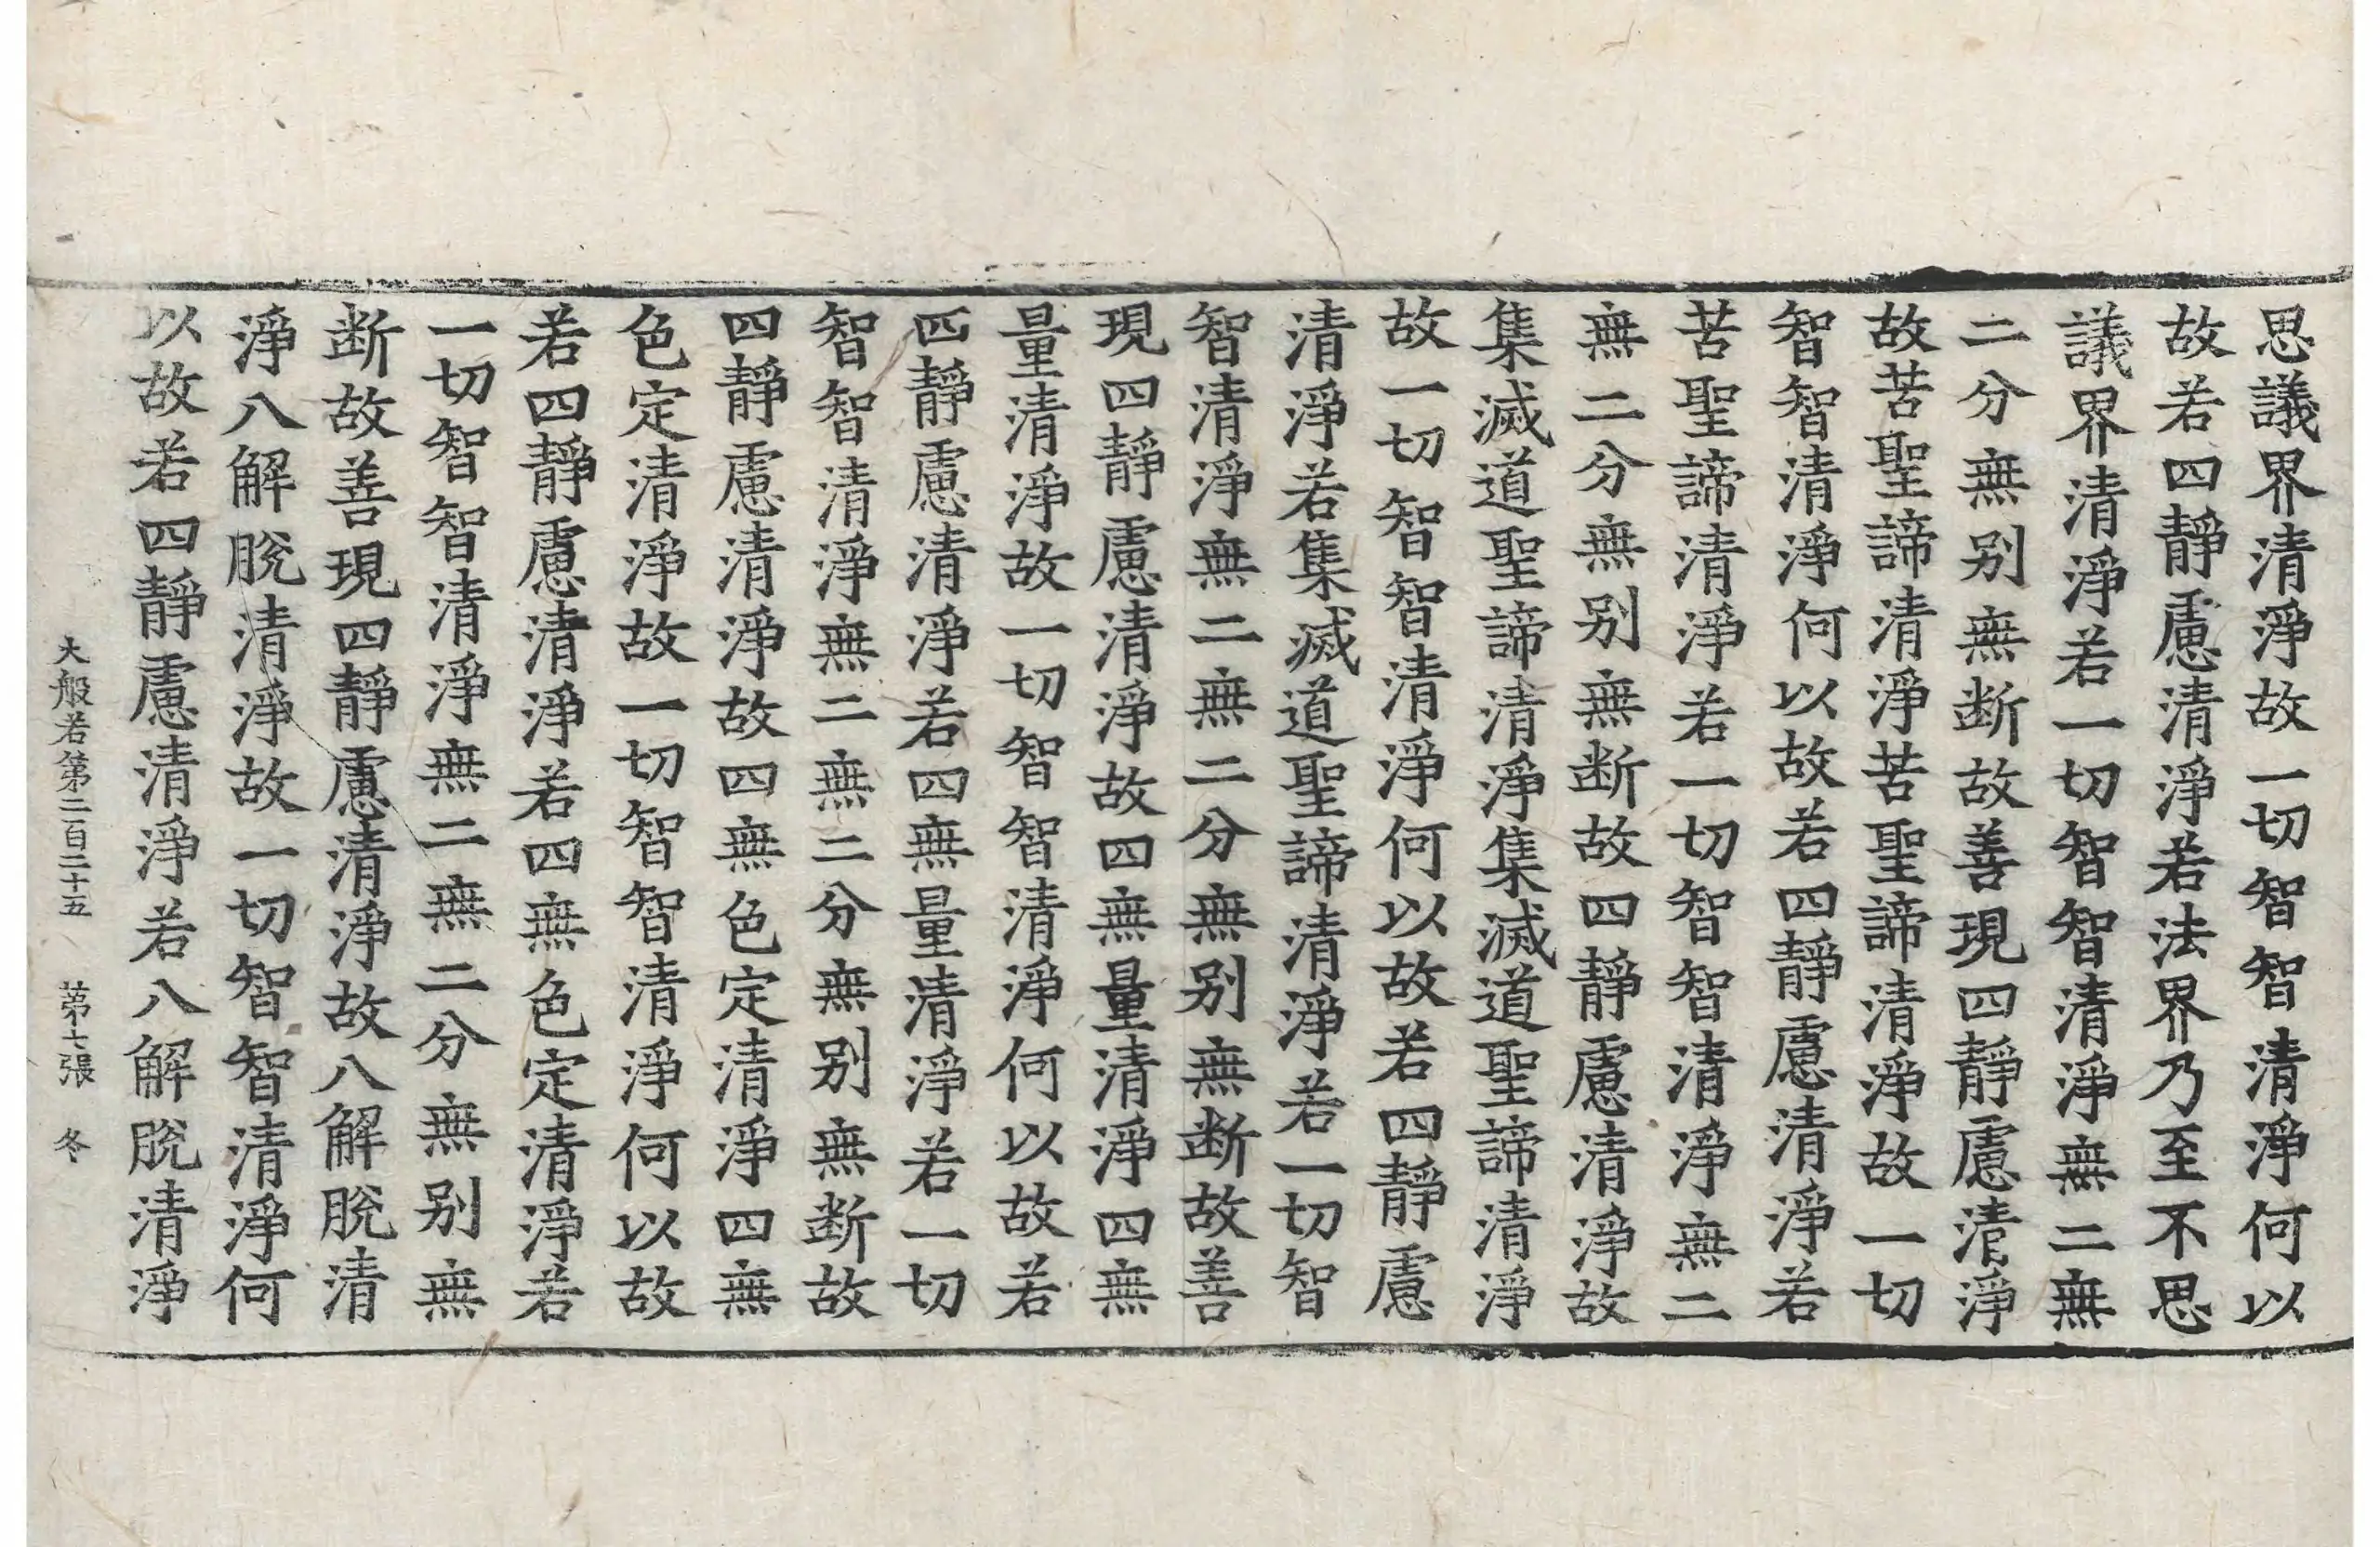 思議界清淨故一切智智清淨何以
故若四靜慮清淨若法界乃至不思
議界清淨若一切智智清淨無二無
二分無别無断故善現四靜慮清淨
故苦聖諦清淨苦聖諦清淨故一切
智智清淨何以故若四靜慮清淨若
苦聖諦清淨若一切智智清淨無二
無二分無别無断故四靜慮清淨故
集滅道聖諦清淨集滅道聖諦清淨
故一切智智清淨何以故若四靜慮
清淨若集滅道聖諦清淨若一切智
智清淨無二無二分無别無断故善
現四靜慮清淨故四無量清淨四無
量清淨故一切智智清淨何以故若
四靜慮清淨若四無量清淨若一切
智智清淨無二無二分無别無断故
四靜慮清淨故四無色定清淨四無
色定清淨故一切智智清淨何以故
若四靜慮清淨若四無色定清淨若
一切智智清淨無二無二分無别無
断故善現四靜慮清淨故八解脫清
淨八解脫清淨故一切智智清淨何
以故若四靜慮清淨若八解脫清淨
大般若第二百二十五 第七張 冬